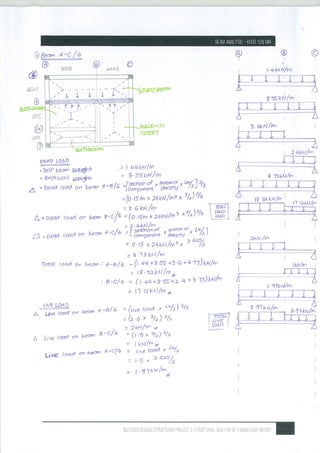 BEAM ANALYSIS - KOOY YUN WAI
Beam A-C/6
A B C
3000 2000
STUDY ROOM
BATHROOM
WALK-IN CLOSET
DEAD LOAD
- Self beam weight = 1.44 kN/m
- Brickwall weight = 8.55 kN/m
△ • Dead load on beam A-B/6 = [section of component × material density × Lx/2] 2/3
= (0.15m × 24kN/m³ × 3/2) 2/3
= 3.6 kN/m
△ • Dead load on beam B-C/6 = (0.15m × 24kN/m³ × 2/2) 2/3
= 2.4 kN/m
• Dead load on beam A-C/6 = [section of component × material density × Lx/2]
= 0.15 × 24kN/m³ × 2.625/2
= 4.73 kN/m
Total load on beam : A-B/6 = (1.44 + 8.55 + 3.6 + 4.73) kN/m
= 18.32 kN/m
: B-C/6 = (1.44 + 8.55 + 2.4 + 4.73) kN/m
= 17.12 kN/m
LIVE LOAD
△ Live load on beam A-B/6 = (live load × Lx/2) 2/3
= (2.0 × 3/2) 2/3
= 2 kN/m
△ Live load on beam B-C/6 = (1.5 × 2/2) 2/3
= 1 kN/m
Live load on beam A-C/6 = live load × Lx/2
= 1.5 × 2.625/2
= 1.97 kN/m
A B C
1.44 kN/m
8.55 kN/m
3.6 kN/m
2.4 kN/m
4.73 kN/m
TOTAL DEAD LOAD
18.32 kN/m
17.12 kN/m
2 kN/m
1 kN/m
1.97 kN/m
TOTAL LIVE LOAD
3.97 kN/m
2.97 kN/m
BLD 60103 BUILDING STRUCTURES PROJECT 2: STRUCTURAL ANALYSIS OF A BUNGALOW REPORT